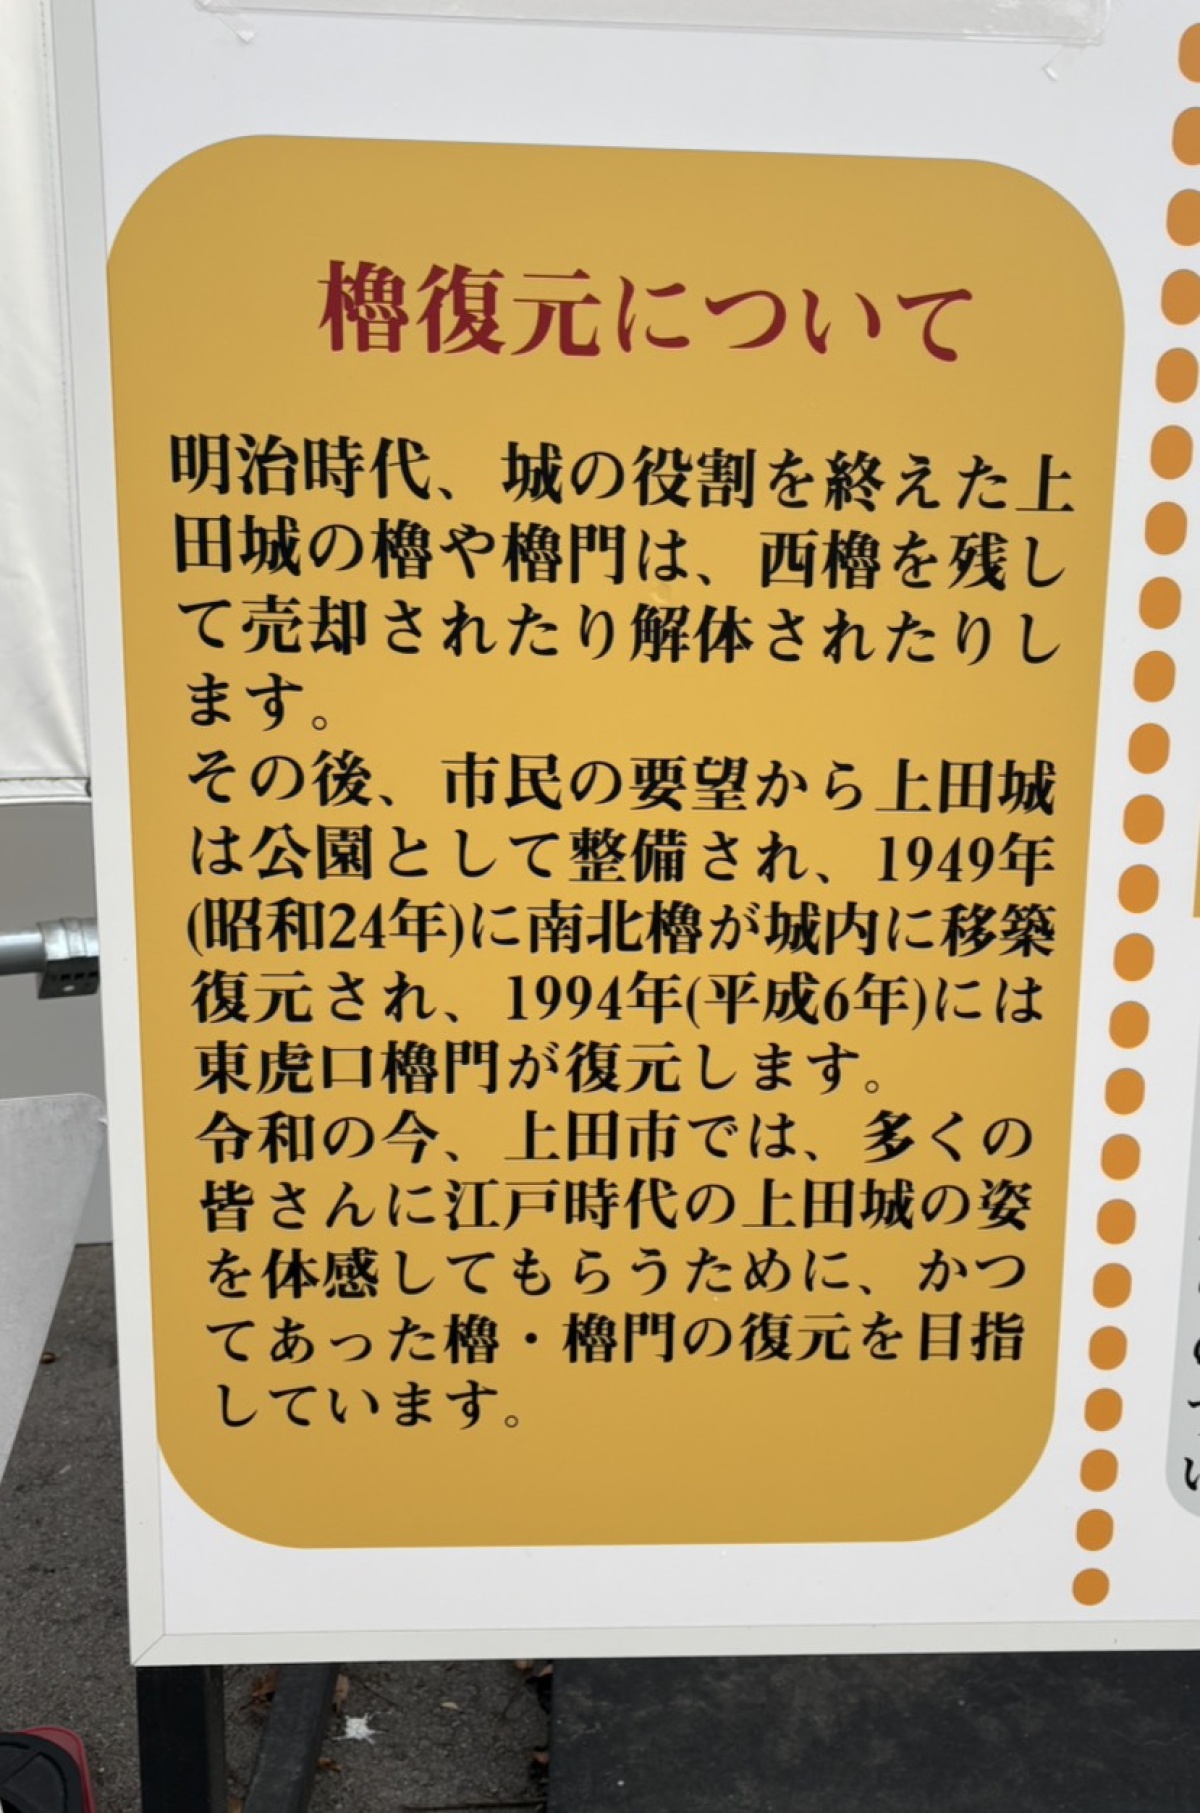 櫓復元について
明治時代、城の役割を終えた上
田城の櫓や櫓門は、西櫓を残し
て売却されたり解体されたりし
ます。
その後、市民の要望から上田城
は公園として整備され、1949年
(昭和24年)に南北櫓が城内に移築
復元され、1994年(平成6年)には
東虎口櫓門が復元します。
令和の今、上田市では、多くの
皆さんに江戸時代の上田城の姿
を体感してもらうために、かつ
てあった櫓・櫓門の復元を目指
しています。